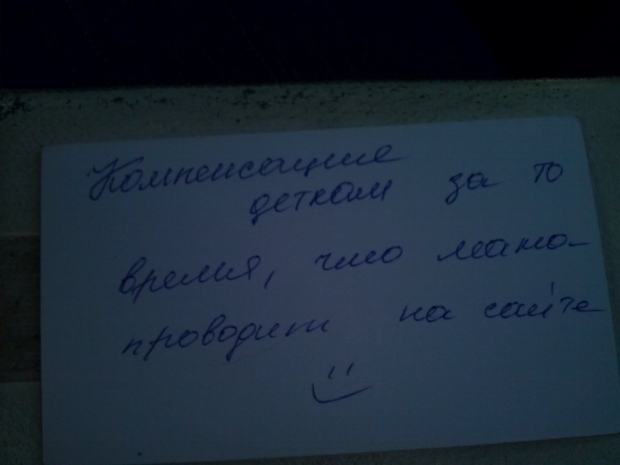 Компенсация
деткам за то
время, что мама
проводит на сайте